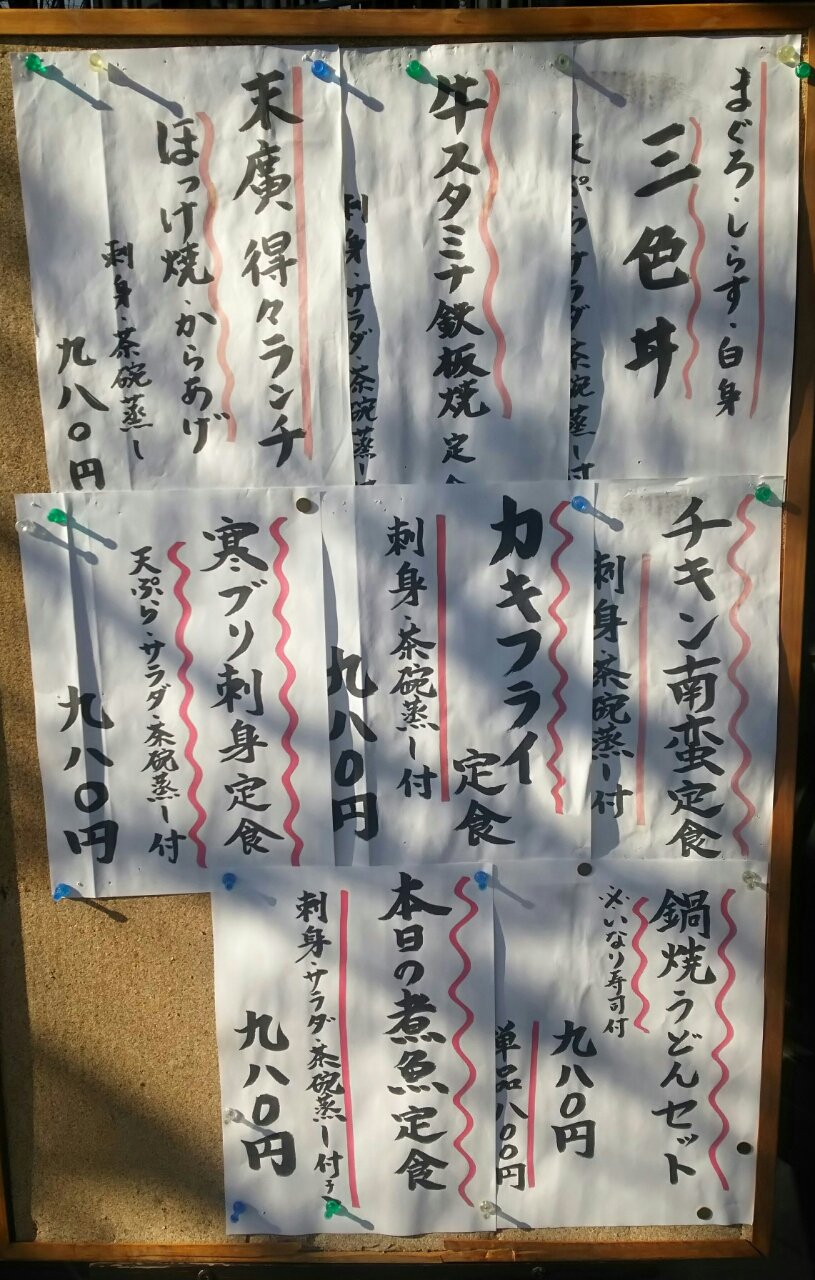 まぐろ・しらす・白身
三色丼
天ぷら・サラダ・茶碗蒸し付
牛スタミナ鉄板焼定食
刺身・サラダ・茶碗蒸し付
末廣得々ランチ
ほっけ焼・からあげ
刺身・茶碗蒸し
九八〇円
チキン南蛮定食
刺身・茶碗蒸し付
カキフライ定食
刺身・茶碗蒸し付
九八〇円
寒ブリ刺身定食
天ぷら・サラダ・茶碗蒸し付
九八〇円
鍋焼うどんセット
※いなり寿司付
九八〇円
単品八〇〇円
本日の煮魚定食
刺身・サラダ・茶碗蒸し付
九八〇円